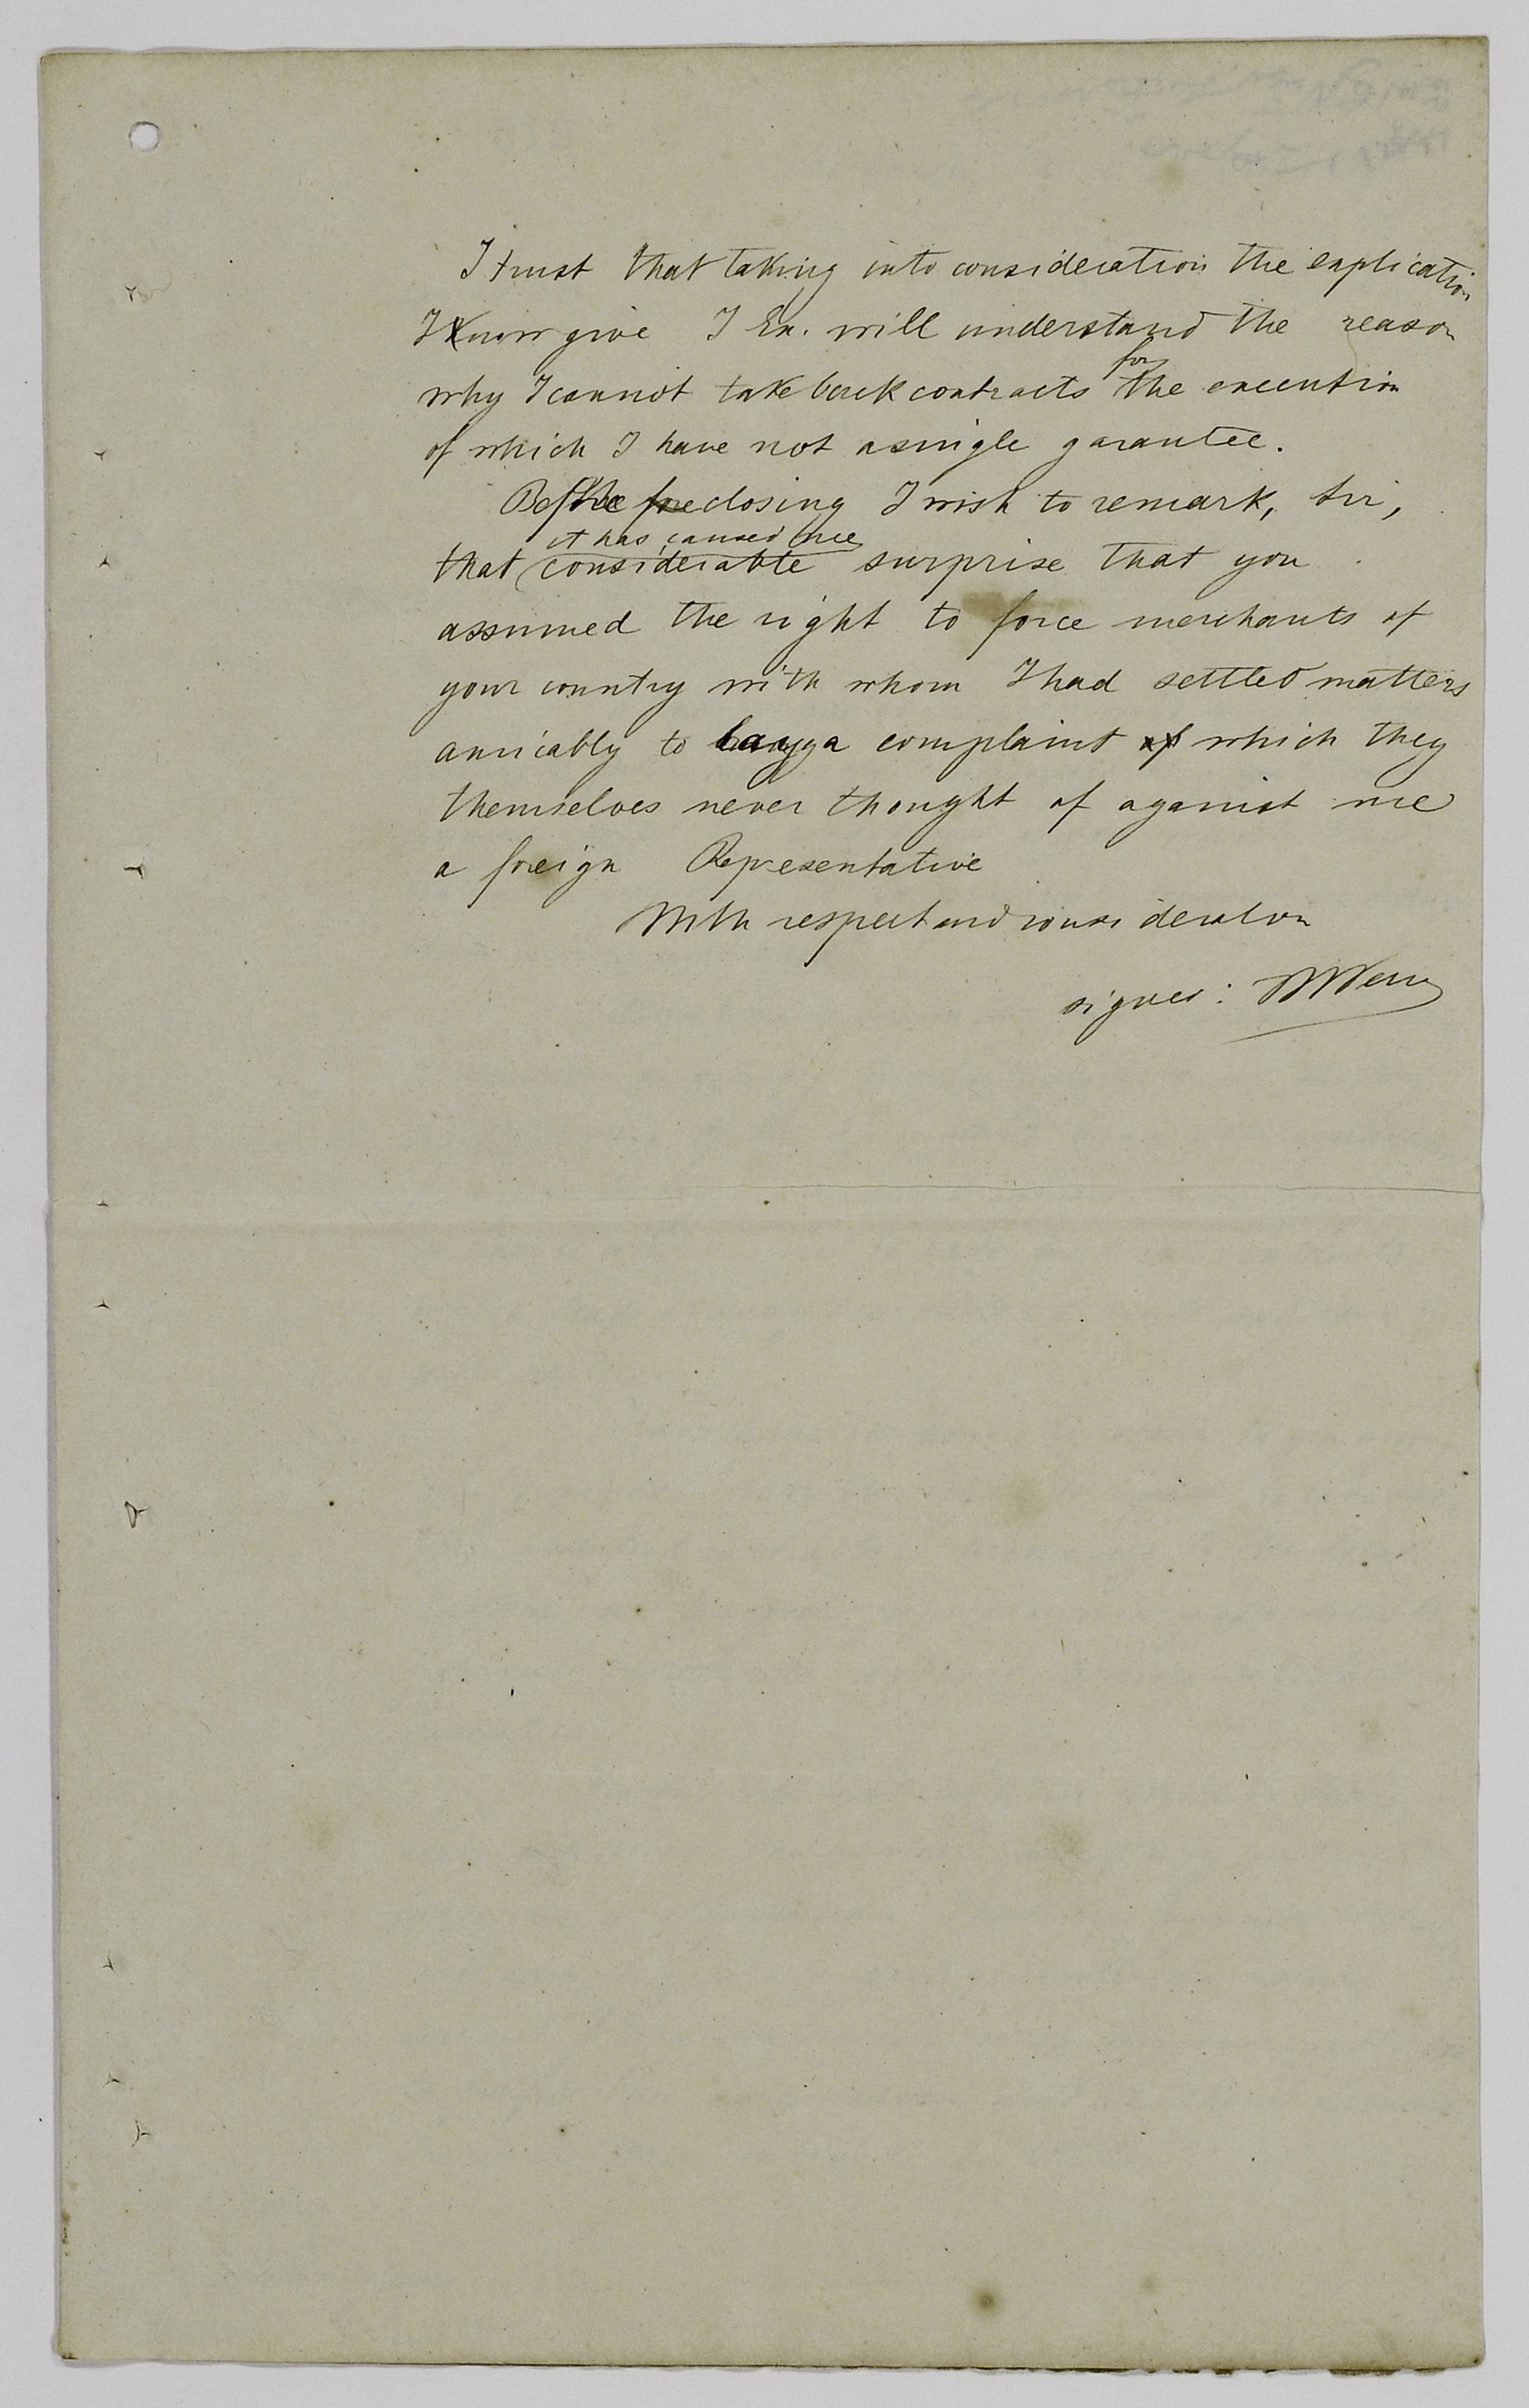 I trust that taking into consideration the explication
I now give Y Ex. will understand the reason
why I cannot take back contracts for the execution
of which I have not a single garantee.
Before closing I wish to remark, Sir,
that it has caused me considerable surprise that you
assumed the right to force merchants of
your country with whom I had settled matters
amicably to lay a complaint of which they
themselves never thought of against me
a foreign Representative
With respect and consideration
signed: